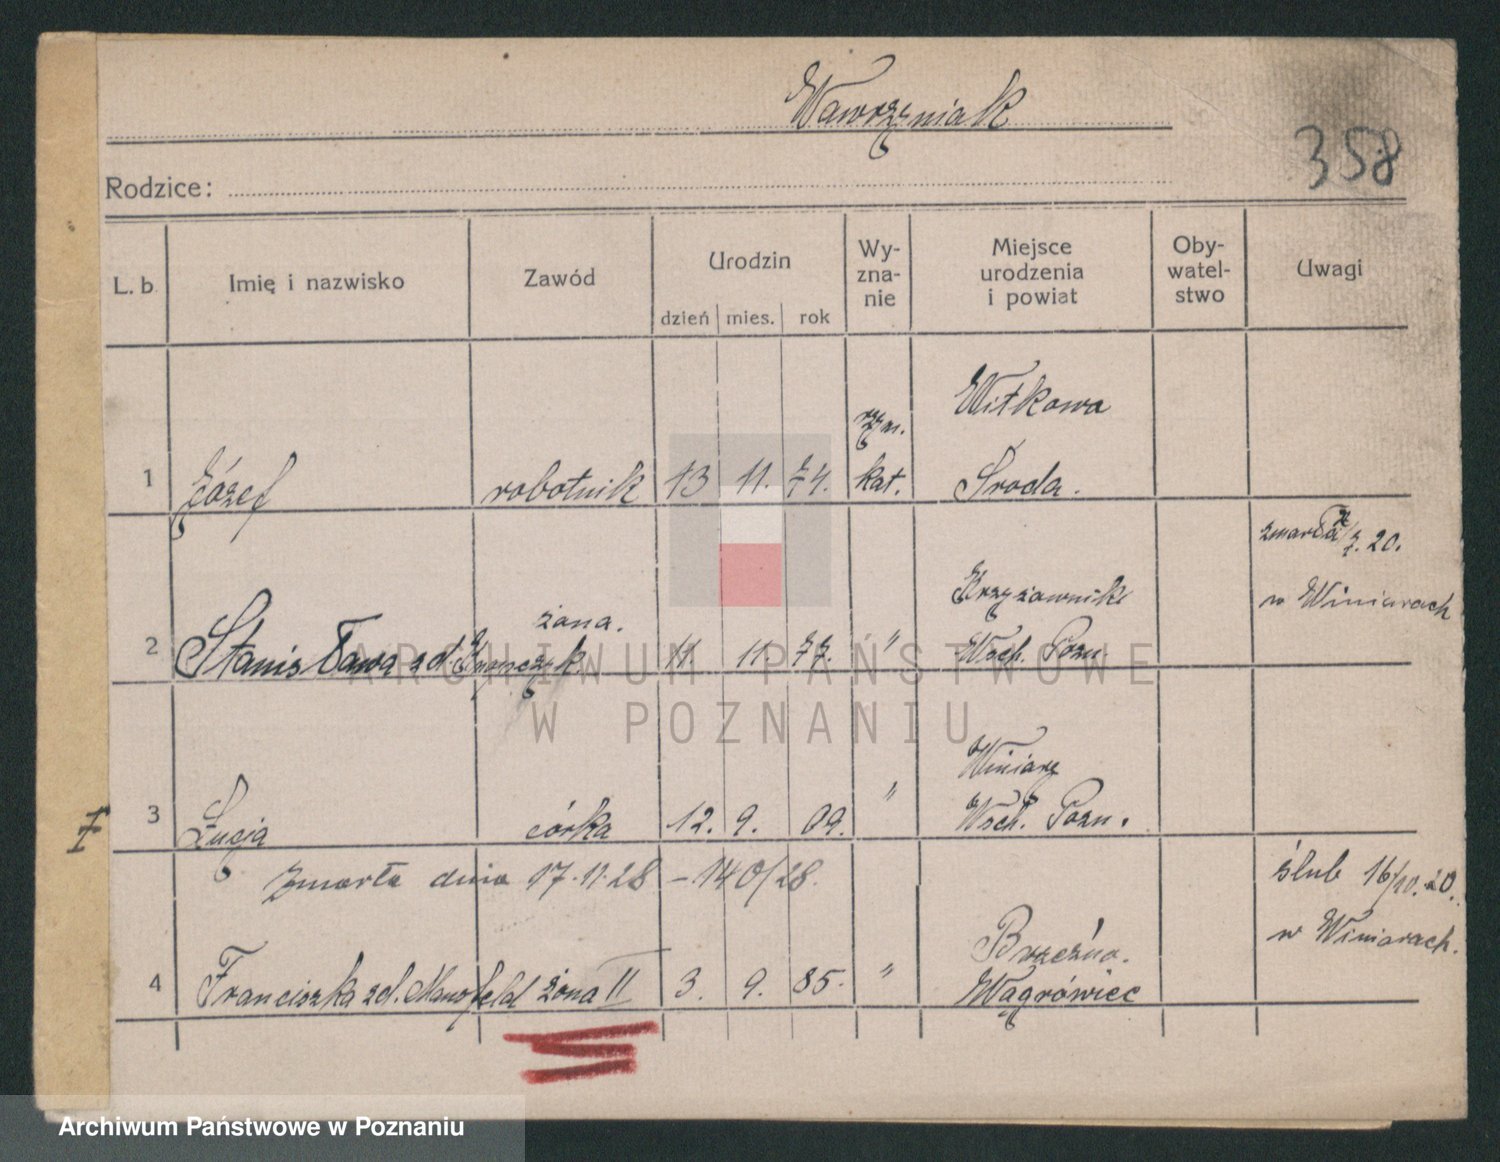 Wawrzyniak
358
Rodzice:
L. b. Imię i nazwisko Zawód Urodzin dzień mies. rok Wy-zna-nie Miejsce urodzenia i powiat Oby-watel-stwo Uwagi
1 Józef robotnik 13 11. 74. rzym. kat. Witkowa Środa.
2 Stanisława zd. żona. 11. 11. 77. " Krzyżowniki Wsch. Pozn. zmarła 20. w Winiarach
3 Łucja córka 12. 9. 09. " Winiary Wsch. Pozn.
zmarła dnia 17.11.28 – 140/28.
4 Franciszka zd. Mansfeld żona II 3. 9. 85. " Brzeźno. Wągrówiec ślub 16/10.20. w Winiarach.
ARCHIWUM PAŃSTWOWE
W POZNANIU
Archiwum Państwowe w Poznaniu